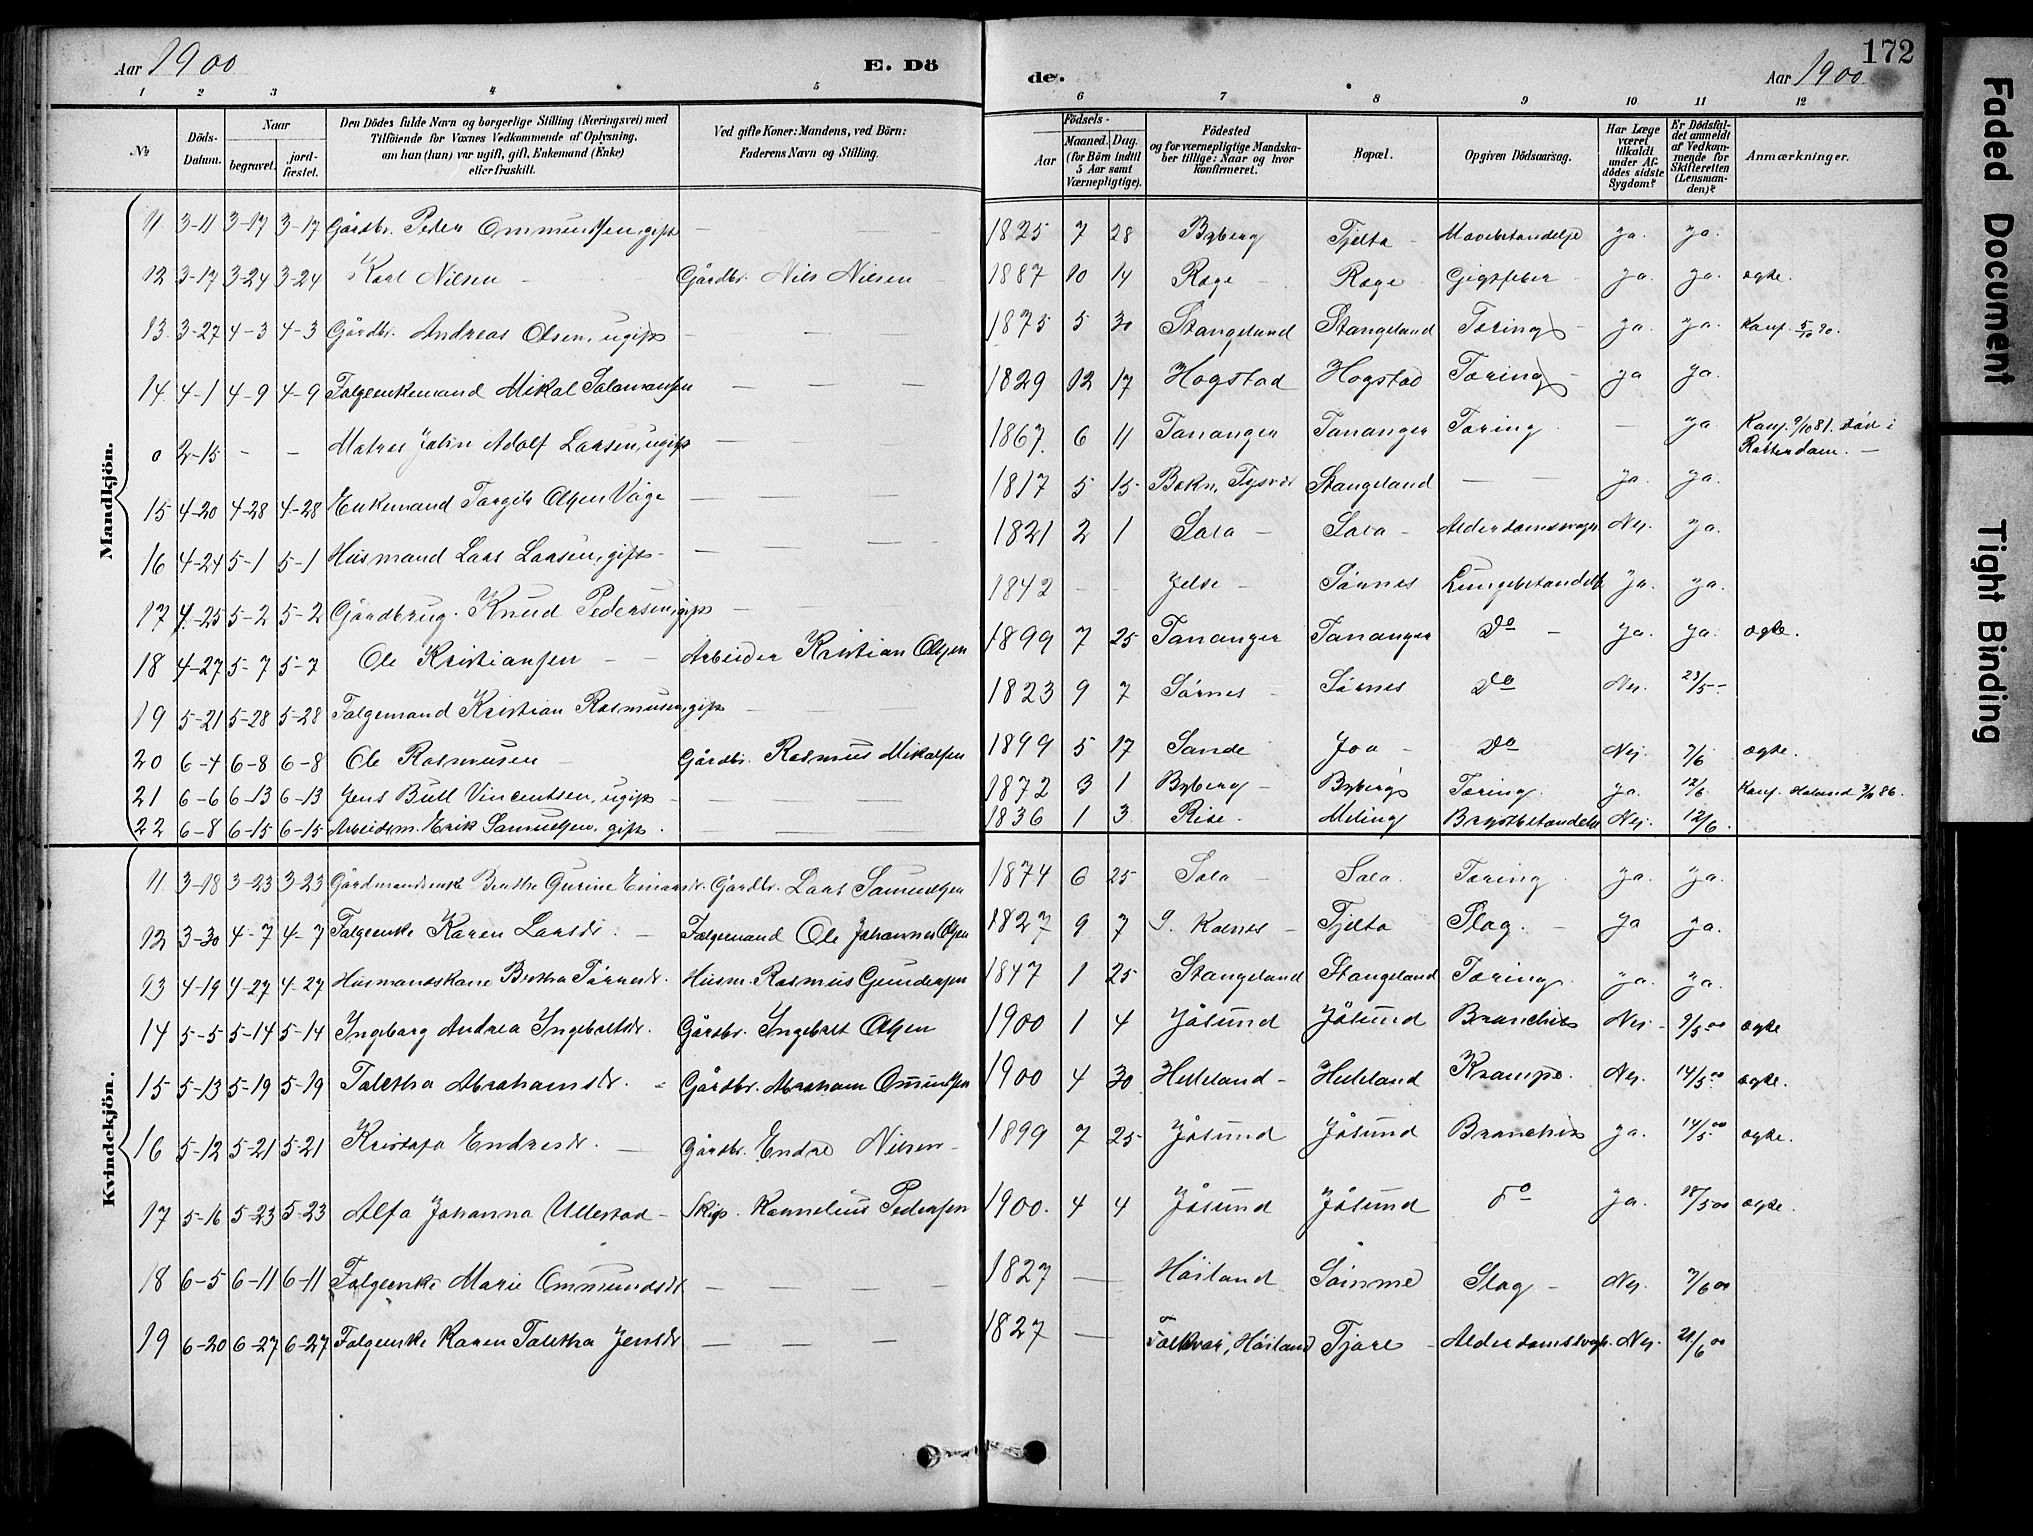 172
Aar 1900 E. Dö
de. Aar 1900
1 2 3 4 5 6 7 8 9 10 11 12
№ Döds-Datum. Naar begravet. jordfæstet. Den Dödes fulde Navn og borgerlige Stilling (Næringsvei) med Tilföiende for Voxnes Vedkommende af Oplysning, om han (hun) var ugift, gift, Enkemand (Enke) eller fraskilt. Ved gifte Koner: Mandens, ved Börn: Faderens Navn og Stilling.
Födsels- Aar Maaned. Dag. (for Börn indtil 5 Aar samt Værnepligtige). Födested og for værnepligtige Mandskaber tillige: Naar og hvor konfirmeret. Bopæl. Opgiven Dödsaarsag. Har Læge været tilkaldt under Afdödes sidste Sygdom? Er Dödsfaldet anmeldt af Vedkommende for Skifteretten (Lensmanden)? Anmærkninger.
Mandkjön.
11 3-11 3-17 3-17 Gårdbr. Peder Ommundsen, gift — — 1825 7 28 Byberg Tjelta - Mavebetændelse ja. ja.
12 3-17 3-24 3-24 Karl Nilsen - Gårdbr. Nils Nilsen 1887 10 14 Røge - Røge Gigtfeber - ja. ja. ægte.
13. 3-27 4-3 4-3 Gårdbr. Andreas Olsen, ugift — — 1875 5 30 Stangeland Stangeland Tæring - ja. ja. Konf. 5/10 90.
14. 4-1 4-9 4-9 Folgeenkemand Mikal Salamonsen — — — 1829 12 17 Hogstad Hogstad Tæring - ja ja.
0 2-15 - - Matros John Adolf Larsen, ugift — 1867. 6 11 Tananger Tananger Tæring — ja Konf. 9/10 81. död i Rotterdam. —
15 4-20 4-28 4-28 Enkemand Torgils Olsen Våge — — — 1817 5 15 Bokn, Tysvær Stangeland — — ja. ja.
16 4-24 5-1 5-1 Husmand Lars Larsen, gift - — — — 1821 2 1 Sola - Sola - Alderdomssvagh. Nej. ja.
17 4-25 5-2 5-2 Gårdbrug. Knud Pedersen, gift — — 1842 - - Jelse - Sörnes Lungebetændelse ja. ja.
18 4-27 5-7 5-7 Ole Kristiansen - — Arbeider Kristian Olsen 1899 7 25 Tananger Tananger Do - ja. ja. ægte.
19 5-21 5-28 5-28 Folgemand Kristian Rasmussen, gift — — 1823 9 7 Sörnes - Sörnes Do Nej. 23/5 -
20 6-4 6-8 6-8 Ole Rasmusen - Gårdbr. Rasmus Mikalsen 1899 5 17 Sande Joa - Do Nej. 7/6 ægte.
21 6-6 6-13 6-13 Jens Bull Vincentsen, ugift - — — 1872 3 1 Byberg - Byberg Tæring. ja. 12/6
22 6-8 6-15 6-15 Arbeidsm. Erik Samuelsen, gift. — — 1836 1 3 Rise. Meling Brystbetændelse Nej. 12/6.
Kvindekjön.
11 3-18 3-23 3-23 Gårdbr. Lars Samuelsen 1874 6 25 Sola - Sola. Tæring. ja. ja.
12 3-30 4-7 4-7 Folgeenke Karen Larsdr. - Folgemand Ole Johannes Olsen 1827 9 7 Tjelta Slag. - ja ja.
13 4-19 4-27 4-27 Husmandskone Bertha Törresdr. Husm. Rasmus Gundersen 1847 1 25 Stangeland Stangeland Tæring. ja. ja.
14 5-5 5-14 5-14 Ingeborg Andrea Ingebretsdr. Gårdbr. Ingebret Olsen 1900 1 4 Jåsund Jåsund Bronchits Nej - 9/5 00 ægte
15 5-13 5-19 5-19 Taletha Abrahamsdr. - Gårdbr. Abraham Ommundsen 1900 4 30 Heleland - Heleland Krampe. Nej. 14/5 00 ægte.
16 5-12 5-21 5-21 Endresdr. — Gårdbr. Endre Nilsen - 1899 7 25 Jåsund Jåsund Bronchits ja. 14/5 00 ægte.
17 5-16 5-23 5-23 Alfa Johanna Ullestad - Skip. Kornelius Pedersen 1900. 4 4 Jåsund Jåsund do ja. 18/5 00 ægte.
18 6-5 6-11 6-11 Folgeenke Marie Ommundsdr — — — — 1827 — Höiland Sömme Slag - Nej. 7/6 00
19 6-20 6-27 6-27 Folgeenke Karen Taletha Jensdr — — — 1827 — Höiland Tjora - Alderdomssvagh. Nej. 21/6 00
Faded Document
Tight Binding